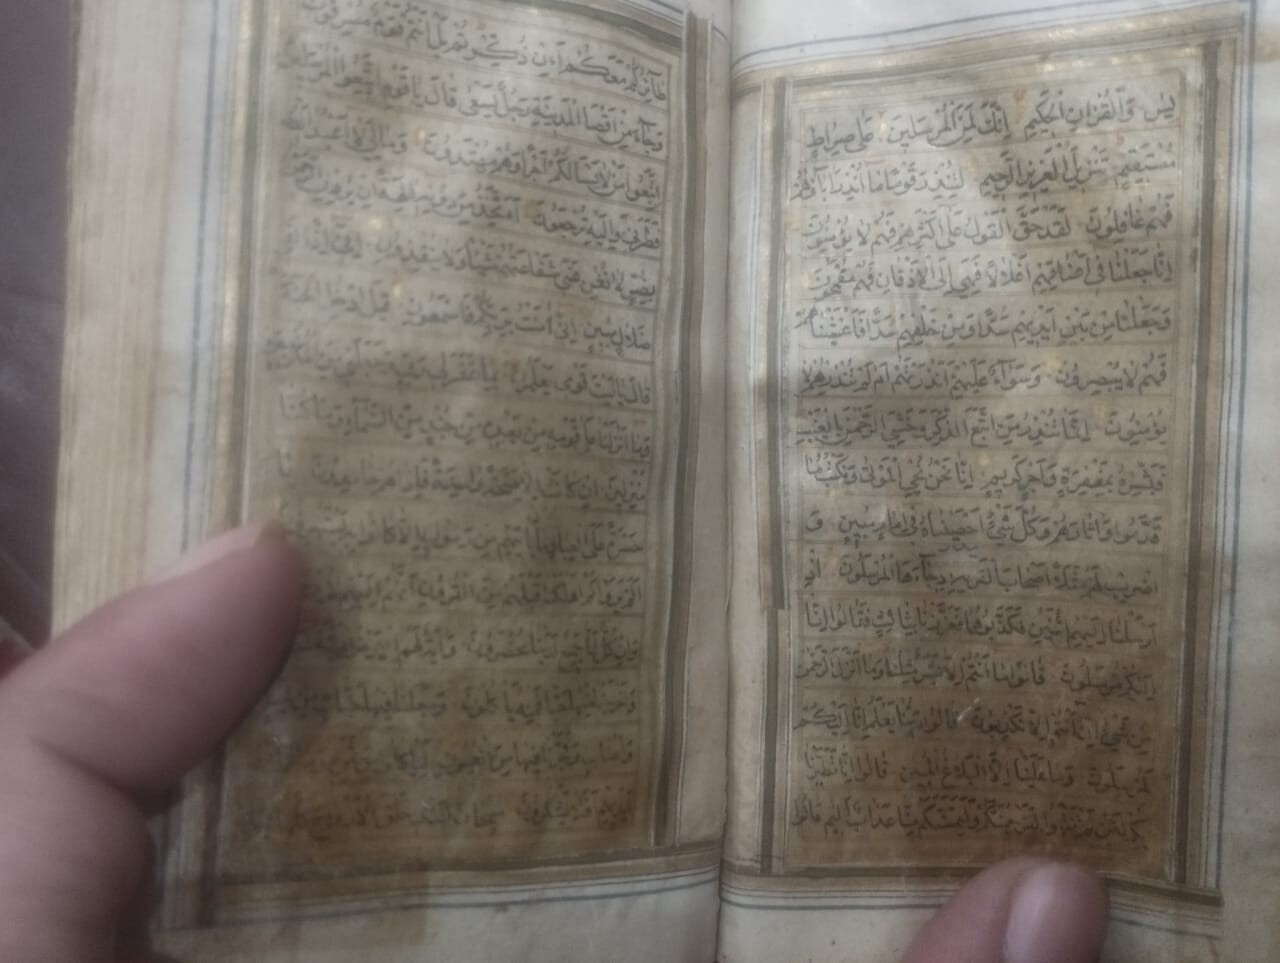 يس وَالْقُرْآنِ الْحَكِيمِ إِنَّكَ لَمِنَ الْمُرْسَلِينَ عَلَى صِرَاطٍ
مُسْتَقِيمٍ تَنْزِيلَ الْعَزِيزِ الرَّحِيمِ لِتُنْذِرَ قَوْمًا مَا أُنْذِرَ آبَاؤُهُمْ
فَهُمْ غَافِلُونَ لَقَدْ حَقَّ الْقَوْلُ عَلَى أَكْثَرِهِمْ فَهُمْ لَا يُؤْمِنُونَ
إِنَّا جَعَلْنَا فِي أَعْنَاقِهِمْ أَغْلَالًا فَهِيَ إِلَى الْأَذْقَانِ فَهُمْ مُقْمَحُونَ
وَجَعَلْنَا مِنْ بَيْنِ أَيْدِيهِمْ سَدًّا وَمِنْ خَلْفِهِمْ سَدًّا فَأَغْشَيْنَاهُمْ
فَهُمْ لَا يُبْصِرُونَ وَسَوَاءٌ عَلَيْهِمْ أَأَنْذَرْتَهُمْ أَمْ لَمْ تُنْذِرْهُمْ لَا
يُؤْمِنُونَ إِنَّمَا تُنْذِرُ مَنِ اتَّبَعَ الذِّكْرَ وَخَشِيَ الرَّحْمَنَ بِالْغَيْبِ
فَبَشِّرْهُ بِمَغْفِرَةٍ وَأَجْرٍ كَرِيمٍ إِنَّا نَحْنُ نُحْيِي الْمَوْتَى وَنَكْتُبُ مَا
قَدَّمُوا وَآثَارَهُمْ وَكُلَّ شَيْءٍ أَحْصَيْنَاهُ فِي إِمَامٍ مُبِينٍ وَ
اضْرِبْ لَهُمْ مَثَلًا أَصْحَابَ الْقَرْيَةِ إِذْ جَاءَهَا الْمُرْسَلُونَ إِذْ
أَرْسَلْنَا إِلَيْهِمُ اثْنَيْنِ فَكَذَّبُوهُمَا فَعَزَّزْنَا بِثَالِثٍ فَقَالُوا إِنَّا
إِلَيْكُمْ مُرْسَلُونَ قَالُوا مَا أَنْتُمْ إِلَّا بَشَرٌ مِثْلُنَا وَمَا أَنْزَلَ الرَّحْمَنُ
مِنْ شَيْءٍ إِنْ أَنْتُمْ إِلَّا تَكْذِبُونَ قَالُوا رَبُّنَا يَعْلَمُ إِنَّا إِلَيْكُمْ
لَمُرْسَلُونَ وَمَا عَلَيْنَا إِلَّا الْبَلَاغُ الْمُبِينُ قَالُوا إِنَّا تَطَيَّرْنَا
بِكُمْ لَئِنْ لَمْ تَنْتَهُوا لَنَرْجُمَنَّكُمْ وَلَيَمَسَّنَّكُمْ مِنَّا عَذَابٌ أَلِيمٌ قَالُوا
طَائِرُكُمْ مَعَكُمْ أَئِنْ ذُكِّرْتُمْ بَلْ أَنْتُمْ قَوْمٌ مُسْرِفُونَ
وَجَاءَ مِنْ أَقْصَا الْمَدِينَةِ رَجُلٌ يَسْعَى قَالَ يَا قَوْمِ اتَّبِعُوا الْمُرْسَلِينَ
اتَّبِعُوا مَنْ لَا يَسْأَلُكُمْ أَجْرًا وَهُمْ مُهْتَدُونَ وَمَا لِيَ لَا أَعْبُدُ الَّذِي
فَطَرَنِي وَإِلَيْهِ تُرْجَعُونَ أَأَتَّخِذُ مِنْ دُونِهِ آلِهَةً إِنْ يُرِدْنِ الرَّحْمَنُ
بِضُرٍّ لَا تُغْنِ عَنِّي شَفَاعَتُهُمْ شَيْئًا وَلَا يُنْقِذُونِ إِنِّي إِذًا لَفِي
ضَلَالٍ مُبِينٍ إِنِّي آمَنْتُ بِرَبِّكُمْ فَاسْمَعُونِ قِيلَ ادْخُلِ الْجَنَّةَ
قَالَ يَا لَيْتَ قَوْمِي يَعْلَمُونَ بِمَا غَفَرَ لِي رَبِّي وَجَعَلَنِي مِنَ الْمُكْرَمِينَ
وَمَا أَنْزَلْنَا عَلَى قَوْمِهِ مِنْ بَعْدِهِ مِنْ جُنْدٍ مِنَ السَّمَاءِ وَمَا كُنَّا
مُنْزِلِينَ إِنْ كَانَتْ إِلَّا صَيْحَةً وَاحِدَةً فَإِذَا هُمْ خَامِدُونَ يَا
حَسْرَةً عَلَى الْعِبَادِ مَا يَأْتِيهِمْ مِنْ رَسُولٍ إِلَّا كَانُوا بِهِ
أَلَمْ يَرَوْا كَمْ أَهْلَكْنَا قَبْلَهُمْ مِنَ الْقُرُونِ أَنَّهُمْ إِلَيْهِمْ
وَإِنْ كُلٌّ لَمَّا جَمِيعٌ لَدَيْنَا مُحْضَرُونَ وَآيَةٌ لَهُمُ